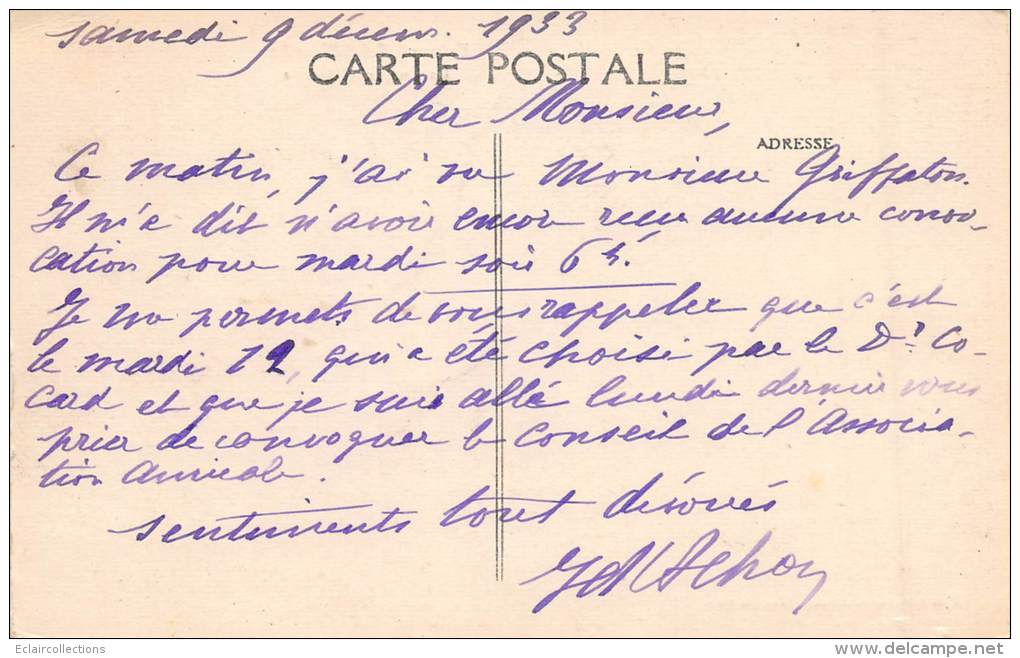 samedi 9 décem. 1933
CARTE POSTALE
Cher Monsieur,
ADRESSE
Ce matin, j'ai vu Monsieur Griffaton.
Il m'a dit n'avoir encore reçu aucune convo-
cation pour mardi soir 6 h.
Je me permets de vous rappeler que c'est
le mardi 12, qui a été choisi par le Dr Co-
card et que je suis allé lundi dernier vous
prier de convoquer le Conseil de l'Associa-
tion amicale.
sentiments tout dévoués
Eclaircollections
www.delcampe.net